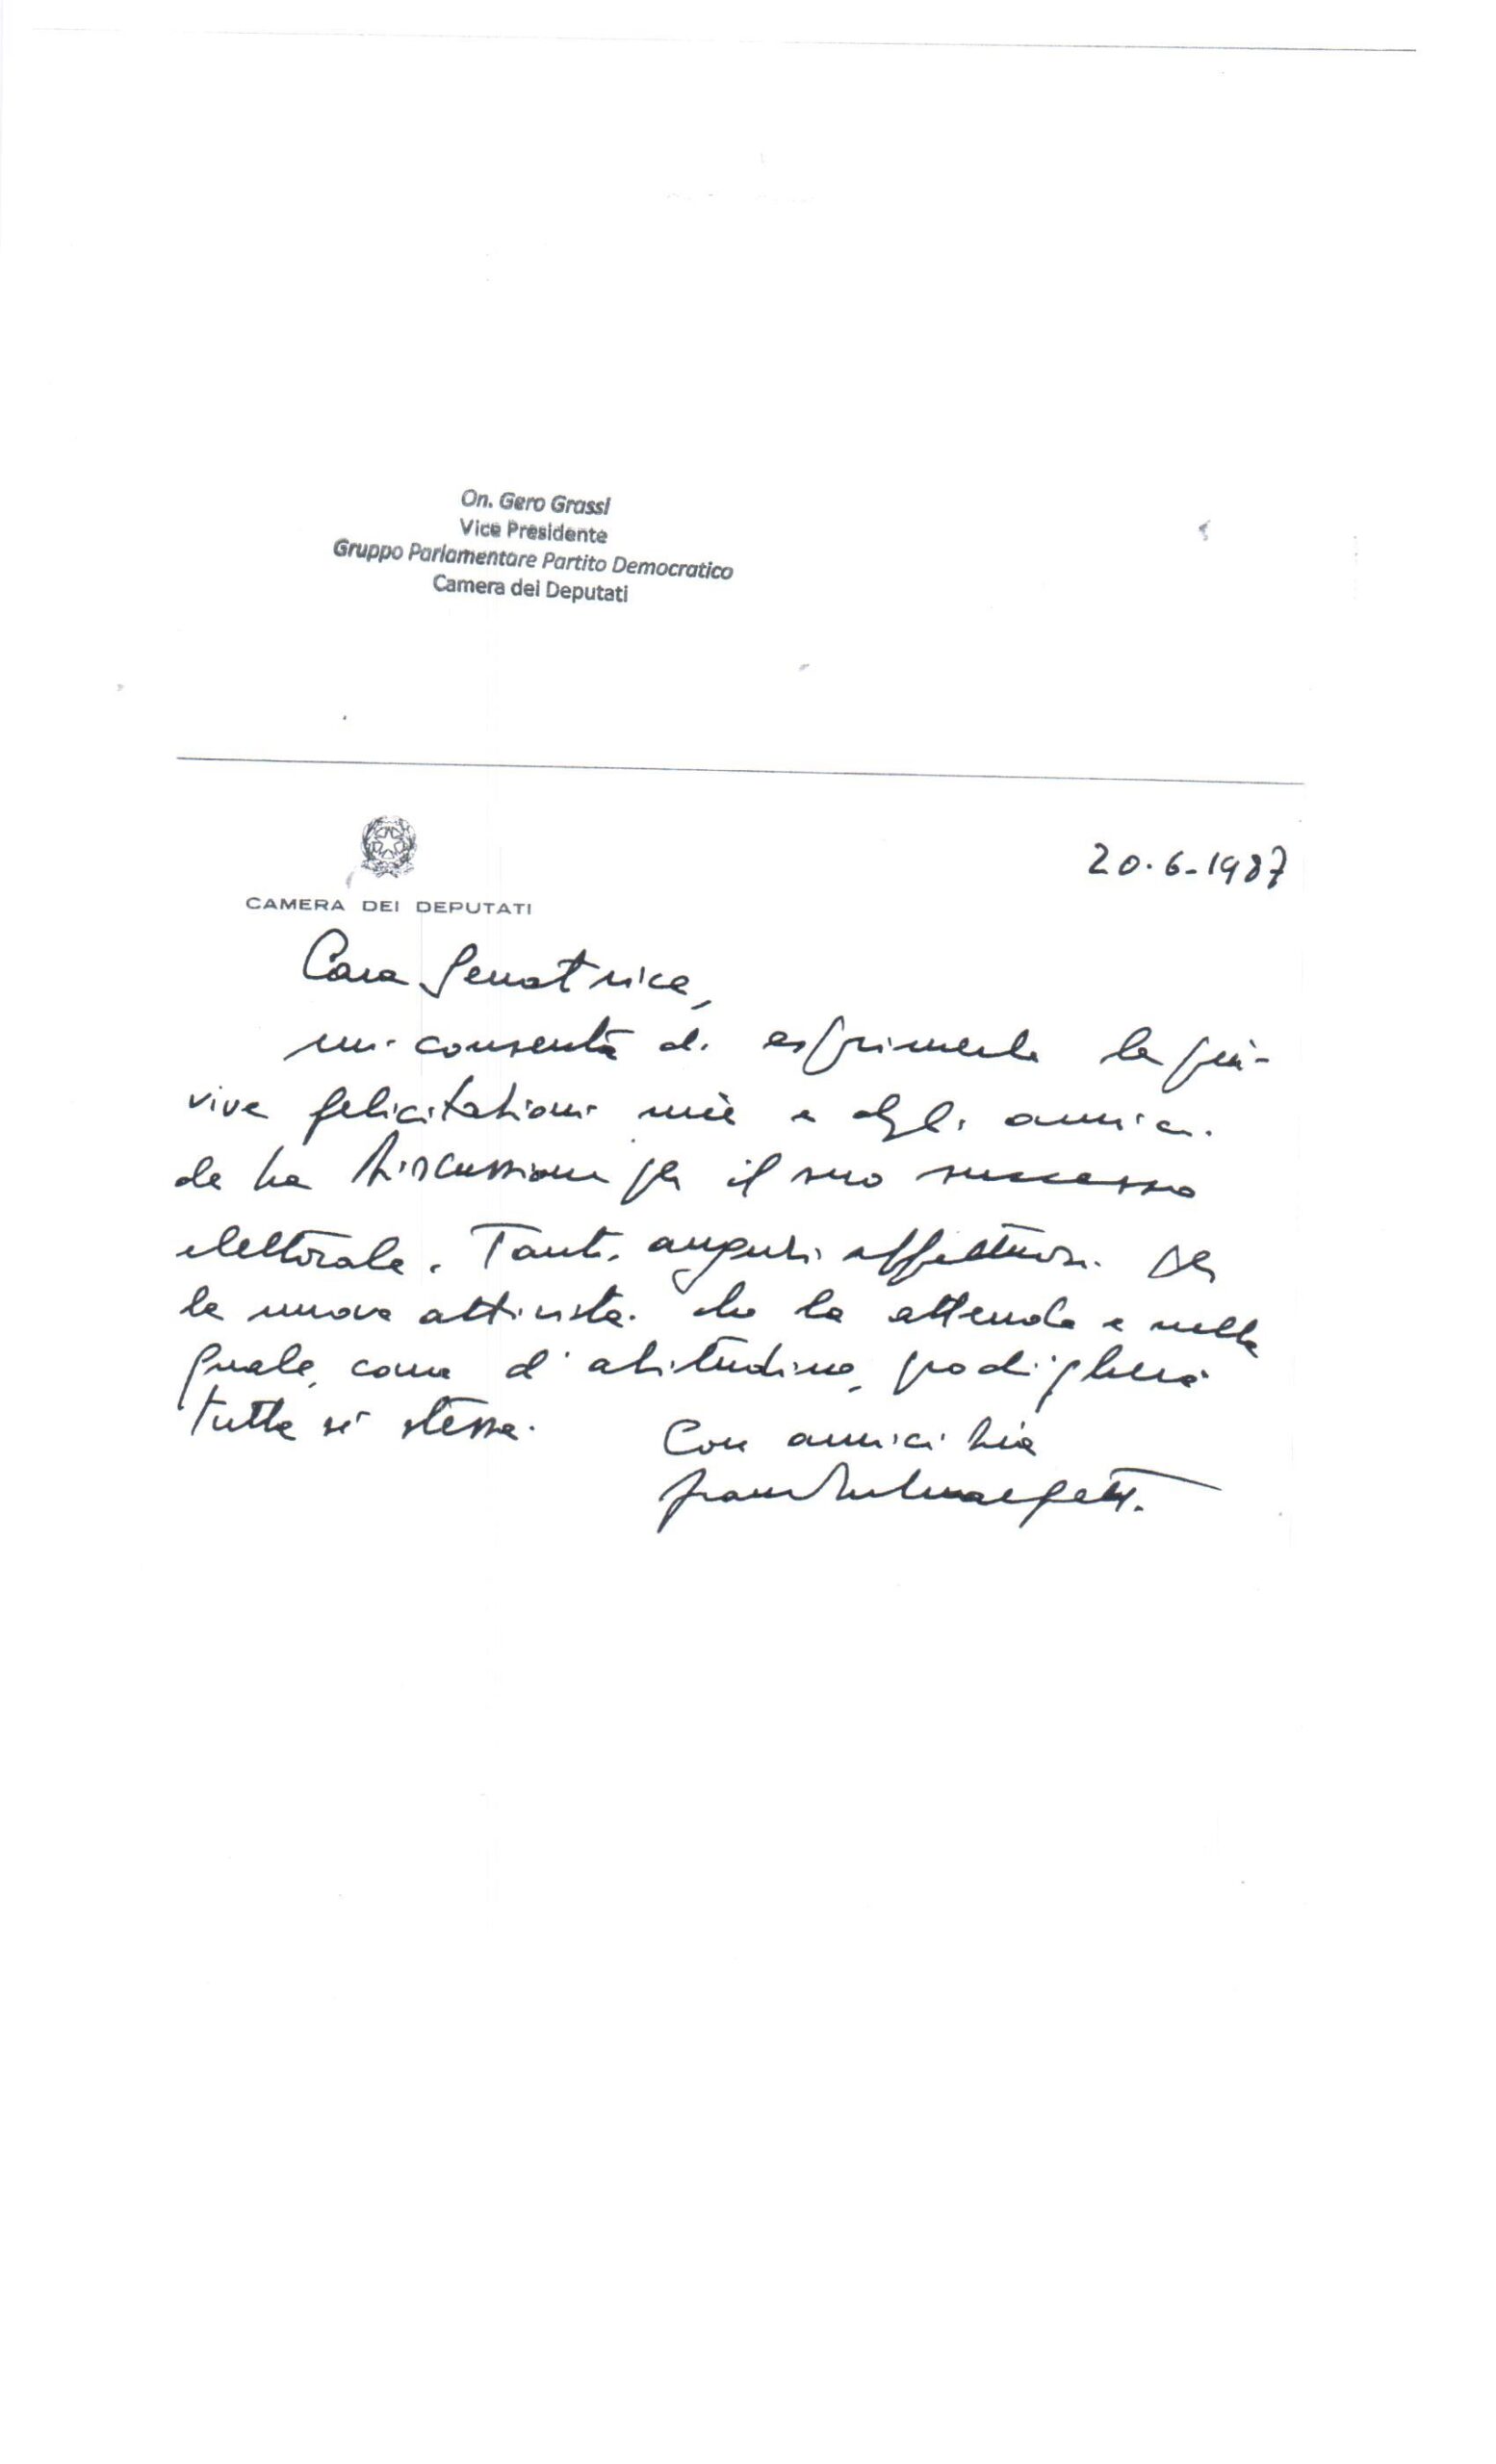 On. Gero Grassi
Vice Presidente
Gruppo Parlamentare Partito Democratico
Camera dei Deputati
CAMERA DEI DEPUTATI
20.6.1987
Cara Senatrice,
mi consenta di esprimerle le più
vive felicitazioni mie e degli amici
de La Discussione per il suo successo
elettorale. Tanti auguri affettuosi per
la nuova attività che la attende e nella
quale, come d'abitudine, prodigherà
tutta sé stessa.
Con amicizia